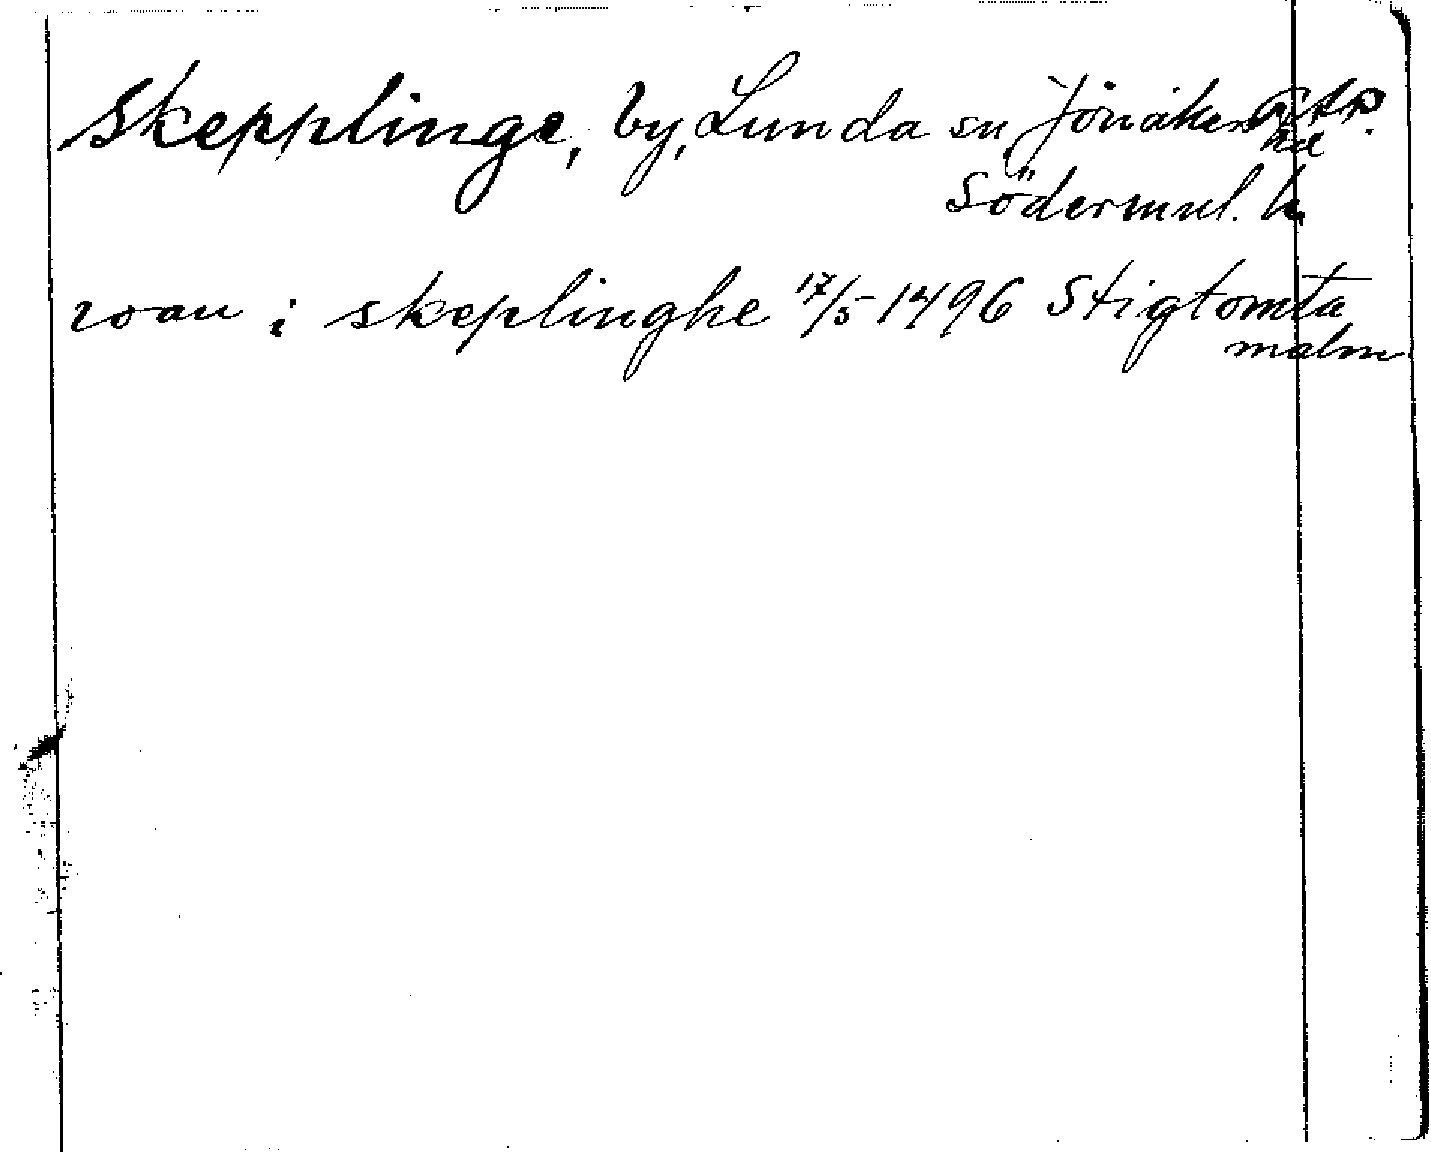 Skepplinge, by, Lunda sn, Jönåkers
hd
Södermanl. l.
i skeplinghe 17/5 1496 Stigtomta
malm